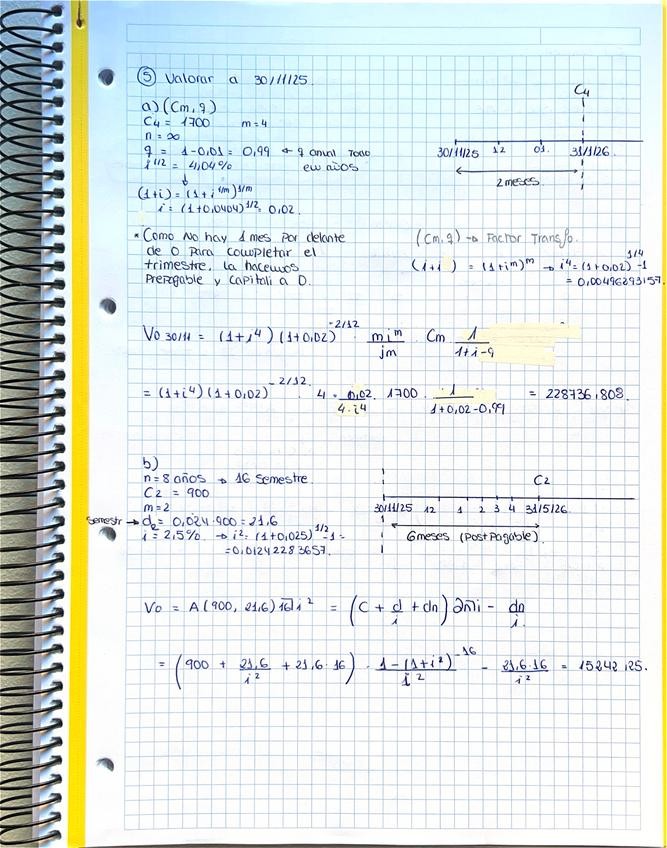 ⑤ Valorar a 30/11/25.
a) (Cm, q)
C4 = 1700 m=4
n = ∞
q = 1-0,01 = 0,99 ← q anual todo en años
i^1/2 = 4,04%
(1+i) = (1+i^1/m)^1/m
i = (1+0,0404)^1/2 = 0,02.
C4
30/11/25 12 01. 31/1/26.
2 meses.
* Como No hay 1 mes por delante
de 0 para completar el
trimestre, la hacemos
Prepagable y capitali a 0.
(Cm, q) → Factor Transfo.
(1+i) = (1+im)^m → i^4 = (1+0,02)^1/4 -1
= 0,00496293157.
Vo 30/11 = (1+i^4) (1+0,02)^-2/12 m i^m / jm Cm 1 / 1+i-q
= (1+i^4) (1+0,02)^-2/12. 4 · 0,02 / 4·i^4 . 1700 . 1 / 1+0,02-0,99 = 228736,808.
b)
n = 8 años → 16 semestre.
C2 = 900
m = 2
Semestr → d2 = 0,024·900 = 21,6
i = 2,5% → i^2 = (1+0,025)^1/2 -1 =
= 0,01242283657.
C2
30/11/25 12 1 2 3 4 31/5/26
6 meses (Postpagable).
Vo = A(900, 21,6) 16¬ i^2 = (C + d/i + dn) a n¬ i - dn/i
= (900 + 21,6/i^2 + 21,6·16) · 1-(1+i^2)^-16 / i^2 - 21,6·16/i^2 = 15242,125.